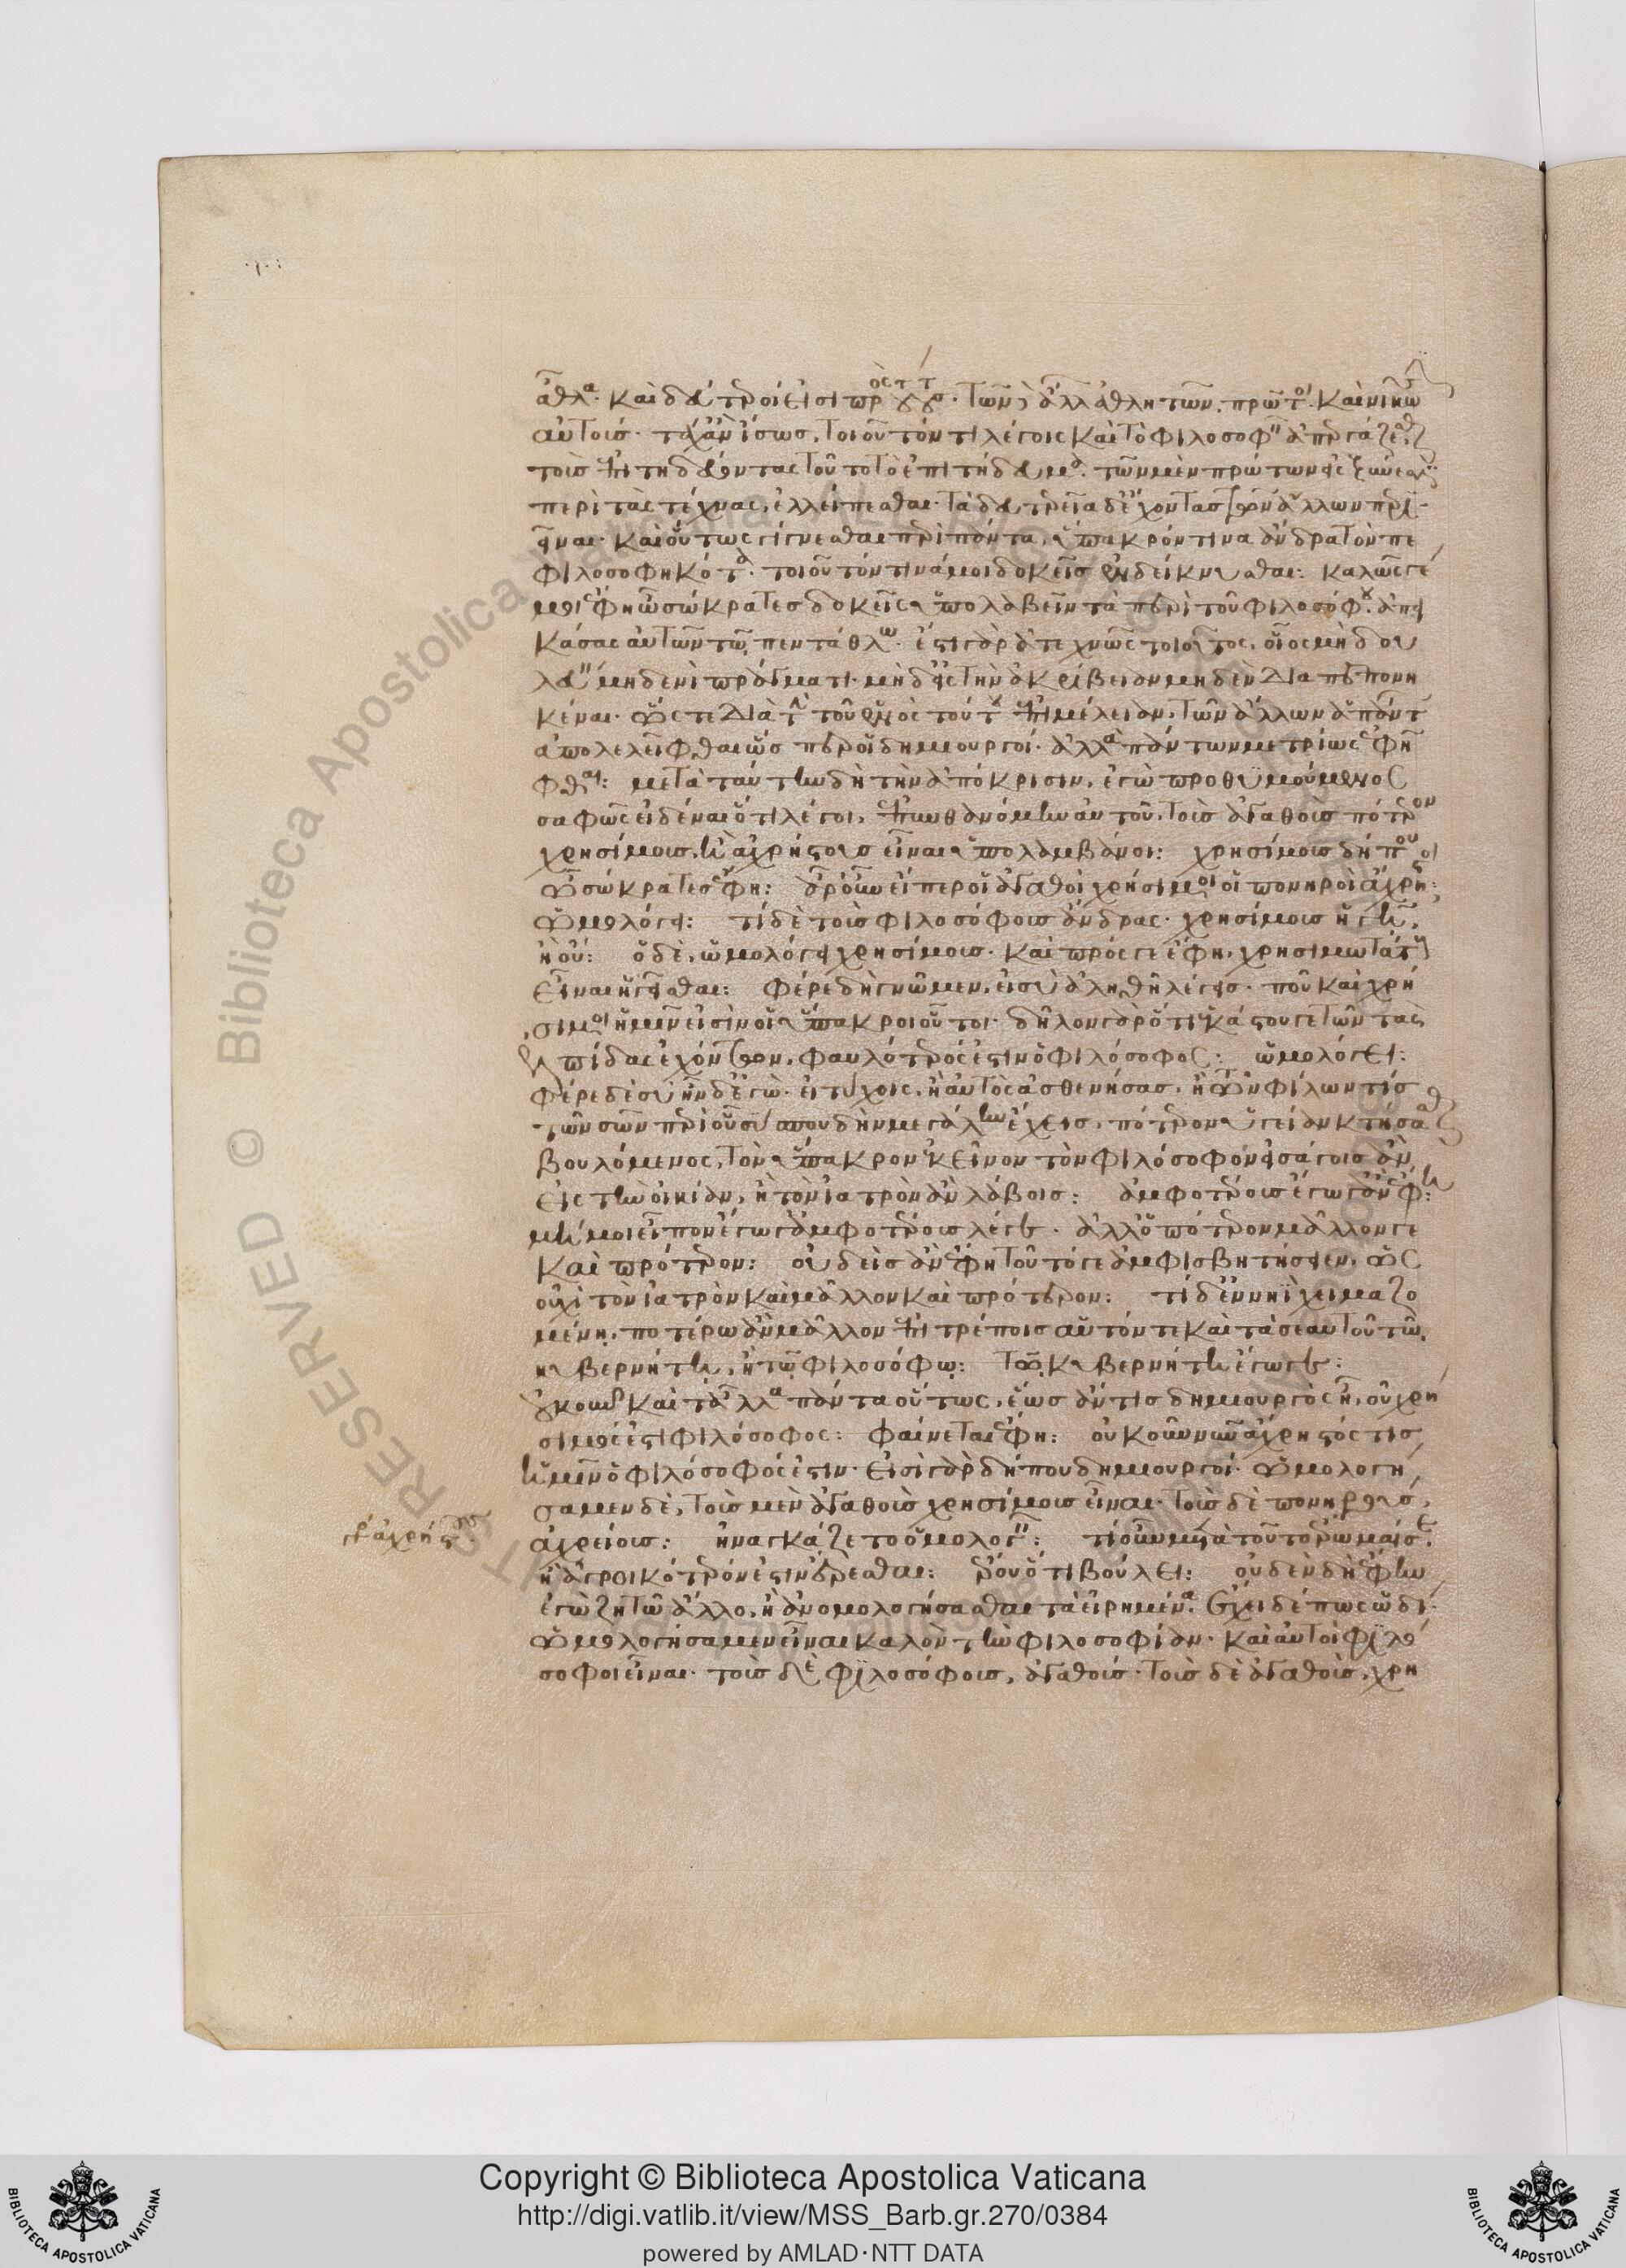 ἆθλα· καὶ δεύτεροι εἰσὶ πρὸς τούτους· τῶν δὲ ἄλλων ἀθλητῶν, πρῶτοι· καὶ νικῶσιν
αὐτούς· τάχ' ἂν ἴσως, τοιοῦτόν τι λέγοις καὶ τὸ φιλοσοφεῖν ἀπεργάζεσθαι
τοὺς ἐπιτηδεύοντας τοῦτο τὸ ἐπιτήδευμα· τῶν μὲν πρώτων εἰς ξύνεσιν
περὶ τὰς τέχνας, ἐλλείπεσθαι· τὰ δευτερεῖα δ' ἔχοντας τῶν ἄλλων περι
εῖναι· καὶ οὕτως γίγνεσθαι περὶ πάντα, ὕπακρόν τινα ἄνδρα τὸν πε
φιλοσοφηκότα· τοιοῦτόν τινά μοι δοκεῖς ἐνδείκνυσθαι: καλῶς γέ
μοι ἔφη ὦ σώκρατες δοκεῖς ὑπολαβεῖν τὰ περὶ τοῦ φιλοσόφου· ἀπει
κάσας αὐτὸν τῷ πεντάθλω· ἔστι γὰρ ἀτεχνῶς τοιοῦτος, οἷος μὴ δου
λεύειν μηδενὶ πράγματι· μὴδ' εἰς τὴν ἀκρίβειαν μηδὲν διαπεπονη
κέναι· ὥστε διὰ τὴν τοῦ ἑνὸς τούτου ἐπιμέλειαν, τῶν ἄλλων ἁπάντων
ἀπολελεῖφθαι ὥσπερ οἱ δημιουργοί· ἀλλὰ πάντων μετρίως ἐφῆ
φθαι: μετὰ ταύτην δὴ τὴν ἀπόκρισιν, ἐγὼ προθυμούμενος
σαφῶς εἰδέναι ὅτι λέγοι, ἐπυνθανόμην αὐτοῦ, τοὺς ἀγαθοὺς πότερον
χρησίμους, ἢ ἀχρήστους εἶναι ὑπολαμβάνοι: χρησίμους δήπου
ὦ σώκρατες ἔφη: ἆρ' οὖν εἴπερ οἱ ἀγαθοὶ χρήσιμοι οἱ πονηροὶ ἄχρηστοι:
ὡμολόγει: τί δὲ τοὺς φιλοσόφους ἄνδρας· χρησίμους ἡγῇ,
ἢ οὔ: ὁ δὲ, ὡμολόγει χρησίμους· καὶ πρός γε ἔφη, χρησιμωτάτους
εἶναι ἡγεῖσθαι: φέρε δὴ γνῶμεν, εἰ σὺ ἀληθῆ λέγεις· ποῦ καὶ χρή
σιμοι ἡμῖν εἰσὶν οἱ ὕπακροι οὗτοι· δῆλον γὰρ ὅτι ἑκάστου γε τῶν τὰς
ἐλπίδας ἐχόντων, φαυλότερός ἐστιν ὁ φιλόσοφος: ὡμολόγει:
φέρε δὲ σὺ ἦν δ' ἐγώ· εἰ τύχοις, ἢ αὐτὸς ἀσθενήσας, ἢ τῶν φίλων τίς
τῶν σῶν περὶ οὓς σὺ σπουδὴν μεγάλην ἔχεις, πότερον ὑγείαν κτήσασθαι
βουλόμενος, τὸν ὕπακρον ἐκεῖνον τὸν φιλόσοφον εἰσάγοις ἂν
εἰς τὴν οἰκίαν, ἢ τὸν ἰατρὸν ἂν λάβοις: ἀμφοτέρους ἔγωγ' ἂν ἔφη:
μή μοι εἶπον ἐγὼ ἀμφοτέρους λέγε· ἀλλ' ὁπότερον μᾶλλόν γε
καὶ πρότερον: οὐδεὶς ἂν ἔφη τοῦτό γε ἀμφισβητήσειεν, ὡς
οὐχὶ τὸν ἰατρὸν καὶ μᾶλλον καὶ πρότερον: τί δ' ἐν νηῒ χειμαζο
μένη, ποτέρω ἂν μᾶλλον ἐπιτρέποις αὑτόν τε καὶ τὰ σεαυτοῦ τῷ
κυβερνήτῃ, ἢ τῷ φιλοσόφῳ: τῷ κυβερνήτῃ ἔγωγε:
οὐκοῦν καὶ τἆλλα πάντα οὕτως, ἕως ἄν τις δημιουργὸς ᾖ, οὐ χρή
σιμός ἐστι φιλόσοφος: φαίνεται ἔφη: οὐκοῦν νῦν ἄχρηστός τις
ἡμῖν ὁ φιλόσοφός ἐστιν· εἰσὶ γὰρ δήπου δημιουργοί· ὡμολογή
σαμεν δὲ, τοὺς μὲν ἀγαθοὺς χρησίμους εἶναι· τοὺς δὲ πονηροὺς,
γρ ἀχρήστους
ἀχρείους: ἠναγκάζετο ὁμολογεῖν: τί οὖν μετὰ τοῦτο ἔρωμαί σε,
ἢ ἀγροικότερόν ἐστιν ἐρέσθαι: ἐροῦ ὅτι βούλει: οὐδὲν δὴ ἔφην
ἐγὼ ζητῶ ἄλλο, ἢ ἀνομολογήσασθαι τὰ εἰρημένα· ἔχει δέ πως ὡδί·
ὡμολογήσαμεν εἶναι καλὸν τὴν φιλοσοφίαν· καὶ αὐτοὶ φιλό
σοφοι εἶναι· τοὺς δὲ φιλοσόφους, ἀγαθούς· τοὺς δὲ ἀγαθοὺς, χρη
Copyright © Biblioteca Apostolica Vaticana
http://digi.vatlib.it/view/MSS_Barb.gr.270/0384
powered by AMLAD·NTT DATA